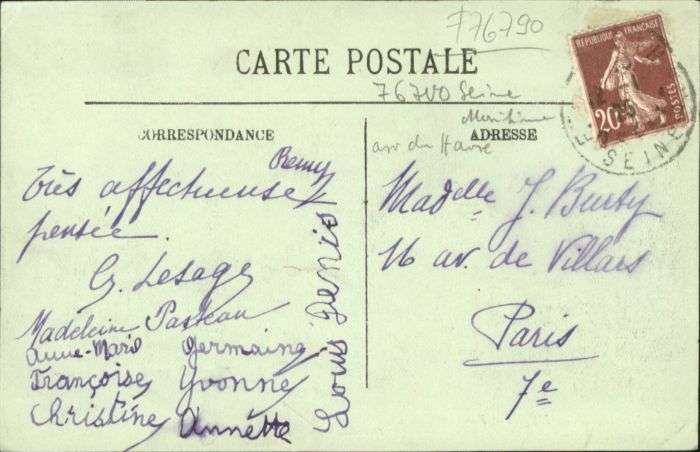 F76790
CARTE POSTALE
REPUBLIQUE FRANÇAISE
20c
POSTES
SEINE
76700 Seine
Maritime
arr du Havre
CORRESPONDANCE
ADRESSE
Remy
Très affectueuse
pensée.
G. Lesage
Madeleine Pasteau
Anne-Marie Germaine
Françoise Yvonne
Christine Annette
Louis Denis
Madelle J. Burty
16 av. de Villars
Paris
7e